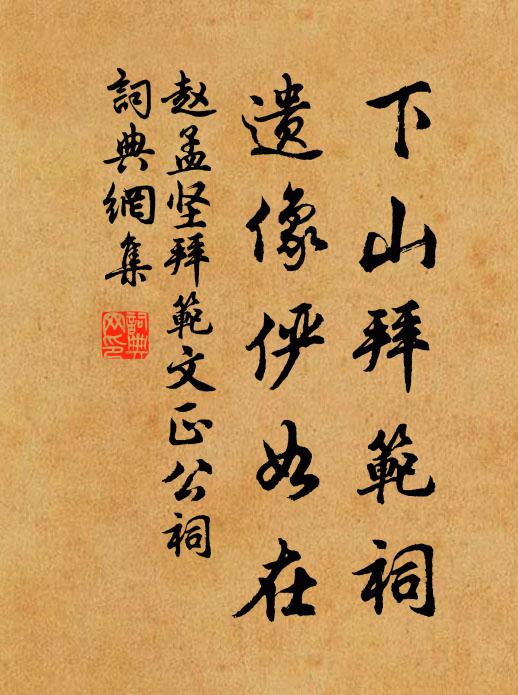 下山拜範祠
遺像俨如在
赵孟坚拜範文正公祠
詞典網集
詞典網印